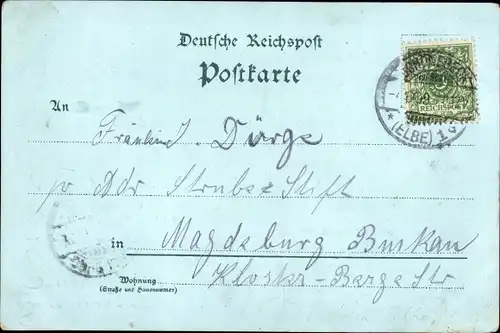 Deutsche Reichspost
Postkarte
An
Fräulein J. Dörge
pr Adr Strube Stift
in Magdeburg Buckau
Wohnung
(Straße und Hausnummer)
Kloster-Berge Str
REICHSPOST
* (ELBE) 1